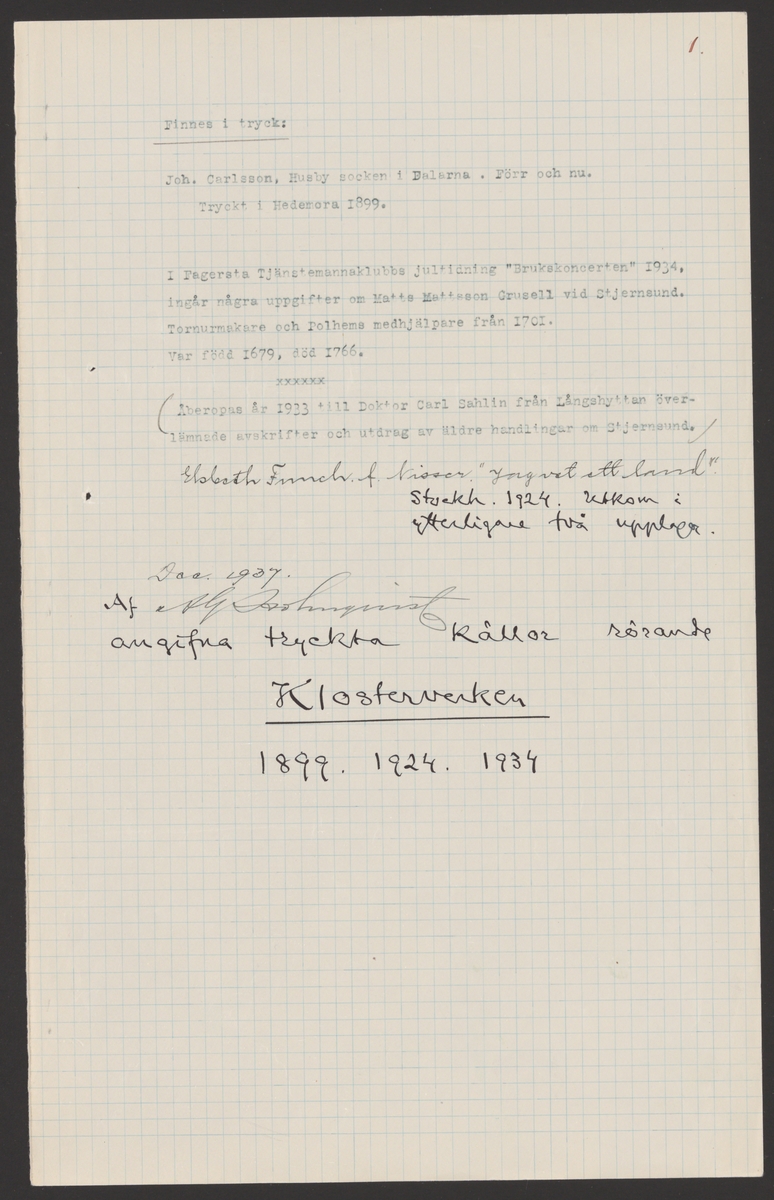 1.
Finnes i tryck:
Joh. Carlsson, Husby socken i Dalarna . Förr och nu.
Tryckt i Hedemora 1899.
I Fagersta Tjänstemannaklubbs jultidning "Brukskoncerten" 1934,
ingår några uppgifter om Matts Mattsson Grusell vid Stjernsund.
Tornurmakare och Polhems medhjälpare från 1701.
Var född 1679, död 1766.
xxxxxx
(Åberopas år 1933 till Doktor Carl Sahlin från Långshyttan över-
lämnade avskrifter och utdrag av äldre handlingar om Stjernsund.)
Elsbeth Funch. f. Nisser. "Jag vet ett land".
Stockh. 1924. Utkom i
ytterligare två upplagor.
Dec. 1937.
Af
angifna tryckta källor rörande
Klosterverken
1899. 1924. 1934